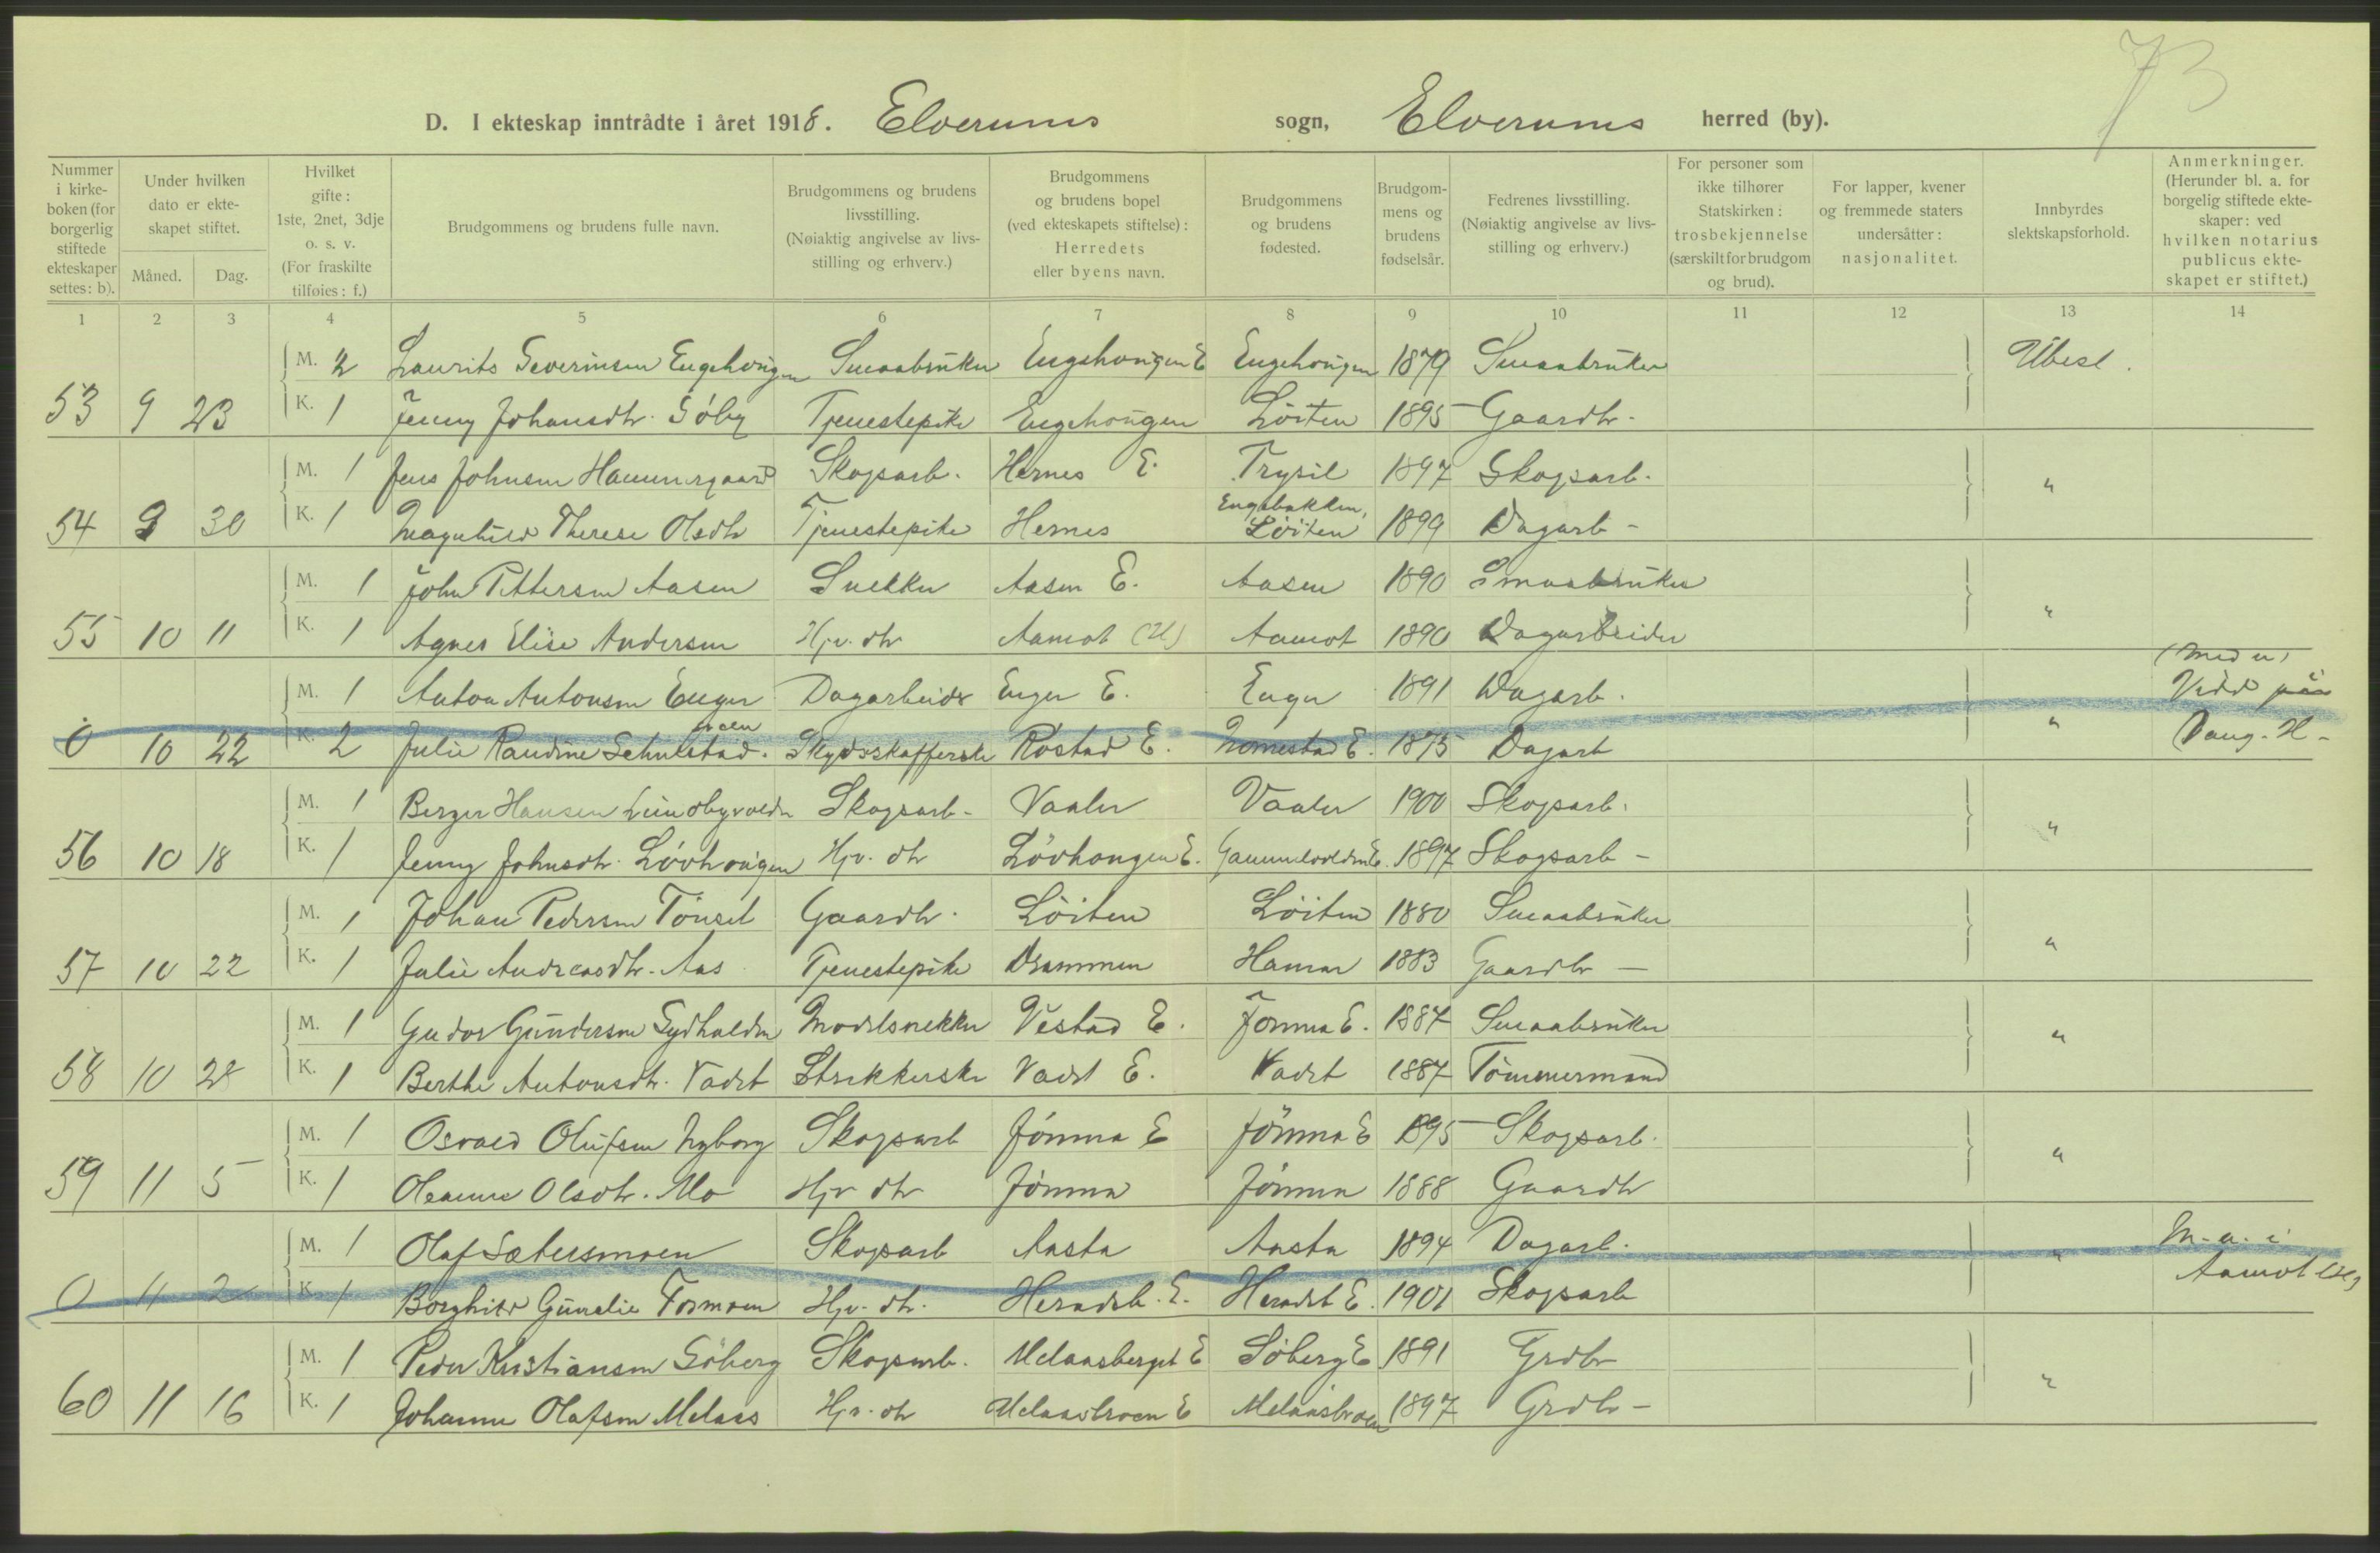 73
D. I ekteskap inntrådte i året 1918. Elverums sogn, Elverums herred (by).
Nummer i kirkeboken (for borgerlig stiftede ekteskaper settes: b).
Under hvilken dato er ekteskapet stiftet.
Måned. Dag.
Hvilket gifte: 1ste, 2net, 3dje o. s. v. (For fraskilte tilføies: f.)
Brudgommens og brudens fulle navn.
Brudgommens og brudens livsstilling. (Nøiaktig angivelse av livsstilling og erhverv.)
Brudgommens og brudens bopel (ved ekteskapets stiftelse): Herredets eller byens navn.
Brudgommens og brudens fødested.
Brudgommens og brudens fødselsår.
Fedrenes livsstilling. (Nøiaktig angivelse av livsstilling og erhverv.)
For personer som ikke tilhører Statskirken: trosbekjennelse (særskilt for brudgom og brud).
For lapper, kvener og fremmede staters undersåtter: nasjonalitet.
Innbyrdes slektskapsforhold.
Anmerkninger. (Herunder bl. a. for borgelig stiftede ekteskaper: ved hvilken notarius publicus ekteskapet er stiftet.)
1 2 3 4 5 6 7 8 9 10 11 12 13 14
M. 2 Laurits Severinsen Engehougen Smaabruker Engehougen E Engehougen 1879 Smaabruker Ubesl.
53 9 23 K. 1 Jenny Johansdtr. Søby Tjenestepike Engehougen Løiten 1895 Gaardbr.
M. 1 Jens Johnsen Hammergaard Skogsarb. Hernes E. Trysil 1897 Skogsarb. "
54 9 30 K. 1 Magnhild Therese Olsdtr Tjenestepike Hernes Engebakken, Løiten 1899 Dagarb -
M. 1 John Pettersen Aasen Snekker Aasen E. Aasen 1890 Smaabruker "
55 10 11 K. 1 Agnes Elise Andersen Hjv. dtr Aamot (H) Aamot 1890 Dagarbeider
M. 1 Anton Antonsen Enger Dagarbeider Enger E. Enger 1891 Dagarb. "
0 10 22 K. 2 Julie Raudine Schulstad. Skydsskafferske Rostad E. Momestad E. 1875 Dagarb Vang. H -
M. 1 Berger Hansen Lundbyvolden Skogsarb - Vaaler Vaaler 1900 Skogsarb. "
56 10 18 K. 1 Jenny Johnsdtr. Løvhougen Hjv. dtr Løvhougen E. Gammelvolden E. 1897 Skogsarb -
M. 1 Johan Pedersen Tønset Gaardbr. Løiten Løiten 1880 Smaabruker "
57 10 22 K. 1 Julie Andreasdtr. Aas Tjenestepike Drammen Hamar 1883 Gaardbr -
M. 1 Gudor Gundersen Sydhalden Modelsnekker Vestad E. Jømna E. 1887 Smaabruker "
58 10 28 K. 1 Berthe Antonsdtr. Vadet Strikkerske Vadet E. Vadet 1887 Tømmermand
M. 1 Osvald Olufsen Nyborg Skogsarb Jømna E Jømna E 1895 Skogsarb. "
59 11 5 K. 1 Oleanna Olsdtr. Mo Hjv dtr Jømna Jømna 1888 Gaardbr
M. 1 Olaf Sætersmoen Skogsarb Aasta Aasta 1894 Dagarb. " M. a. i
0 11 2 K. 1 Borghild Gunelie Formoen Hjv. dtr. Heradsb. E. Heradsb E. 1901 Skogsarb Aamot
M. 1 Peder Kristiansen Søberg Skogsarb. Melaasberget E Søberg E 1891 Grdbr "
60 11 16 K. 1 Johanne Olafsen Melaas Hjv. dtr Melaasbroen E Melaasbroen 1897 Grdbr -